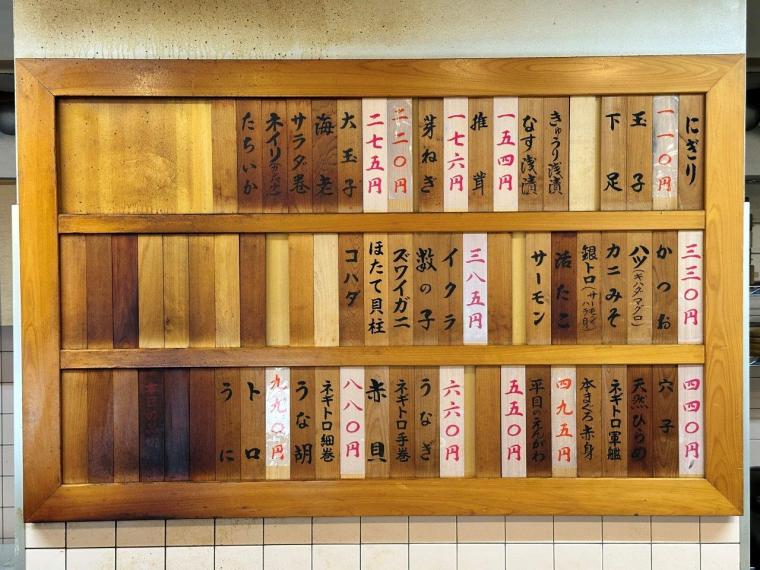 にぎり
一一〇円
玉子
下足
きゅうり浅漬
なす浅漬
一五四円
椎茸
一七六円
芽ねぎ
二二〇円
二七五円
大玉子
海老
サラダ巻
ネイリ
たちいか
三三〇円
かつお
ハツ(キハダマグロ)
カニみそ
銀トロ
活たこ
サーモン
三八五円
イクラ
数の子
ズワイガニ
ほたて貝柱
コハダ
四四〇円
穴子
天然ひらめ
ネギトロ軍艦
本まぐろ赤身
四九五円
平目のえんがわ
五五〇円
六六〇円
うなぎ
ネギトロ手巻
赤貝
八八〇円
ネギトロ細巻
うな胡
九九〇円
トロ
うに